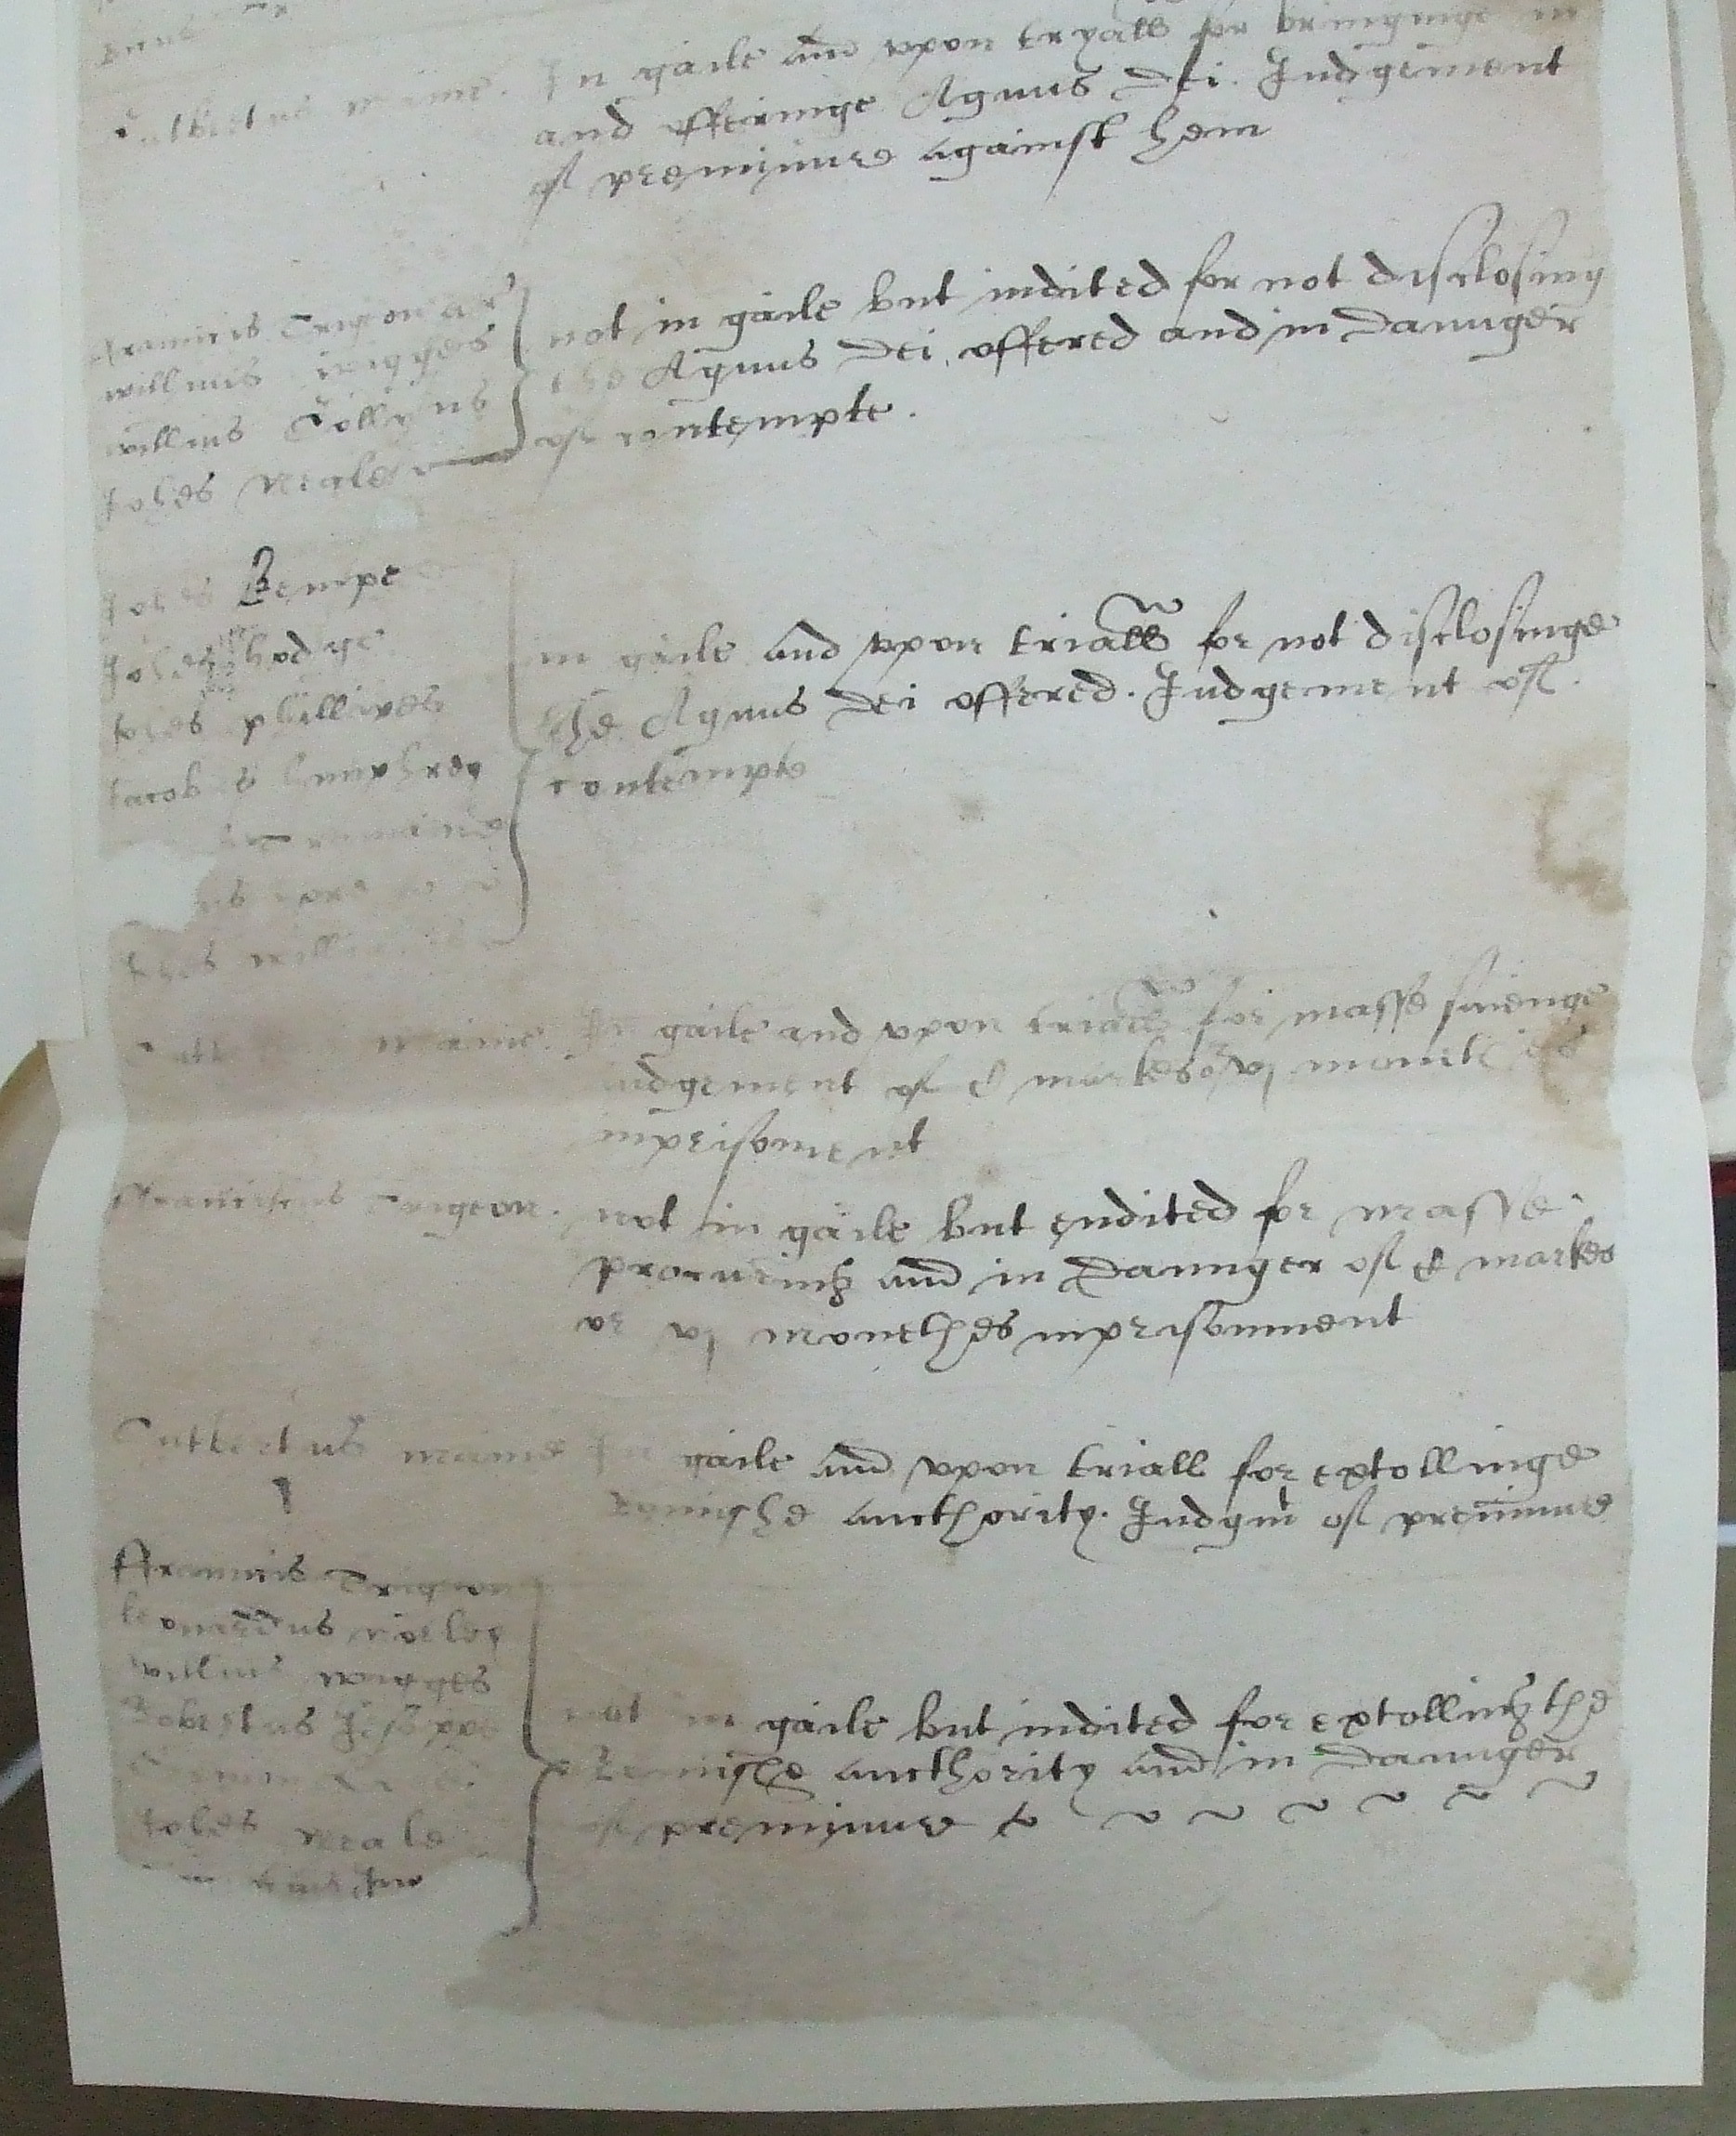 Cutbertus maine. In gaile and vpon tryall for bringinge in
and offeringe Agnus Dei. Iudgement
of premunire against hem
Francis Trigion ar
willmis wigges
willmis Collyns
Iohes Neale
not in gaile but indited for not disclosing
the Agnus Dei offered and in daunger
of contempte.
Iohes Kempe
Iohes hodge
Iohes phillipes
Iacobus humphrey
in gaile and vpon triall for not disclosinge
the Agnus Dei offered. Iudgement of
contempte
maine. In gaile and vpon triall for masse saienge
iudgement of C markes or vj monethes
inprisoment
Franciscus Trigeon. not in gaile but endited for masse
procuring and in daunger of C markes
or vj monethes inprisonment
Cutbertus maine In gaile and vpon triall for extollinge
romishe aucthority. Iudgmt of premunire
Francis Trigion
leonardus viorley
willmus wigges
Robertus
Iohes Neale
not in gaile but indited for extolling the
Romishe aucthority and in daunger
of premunire